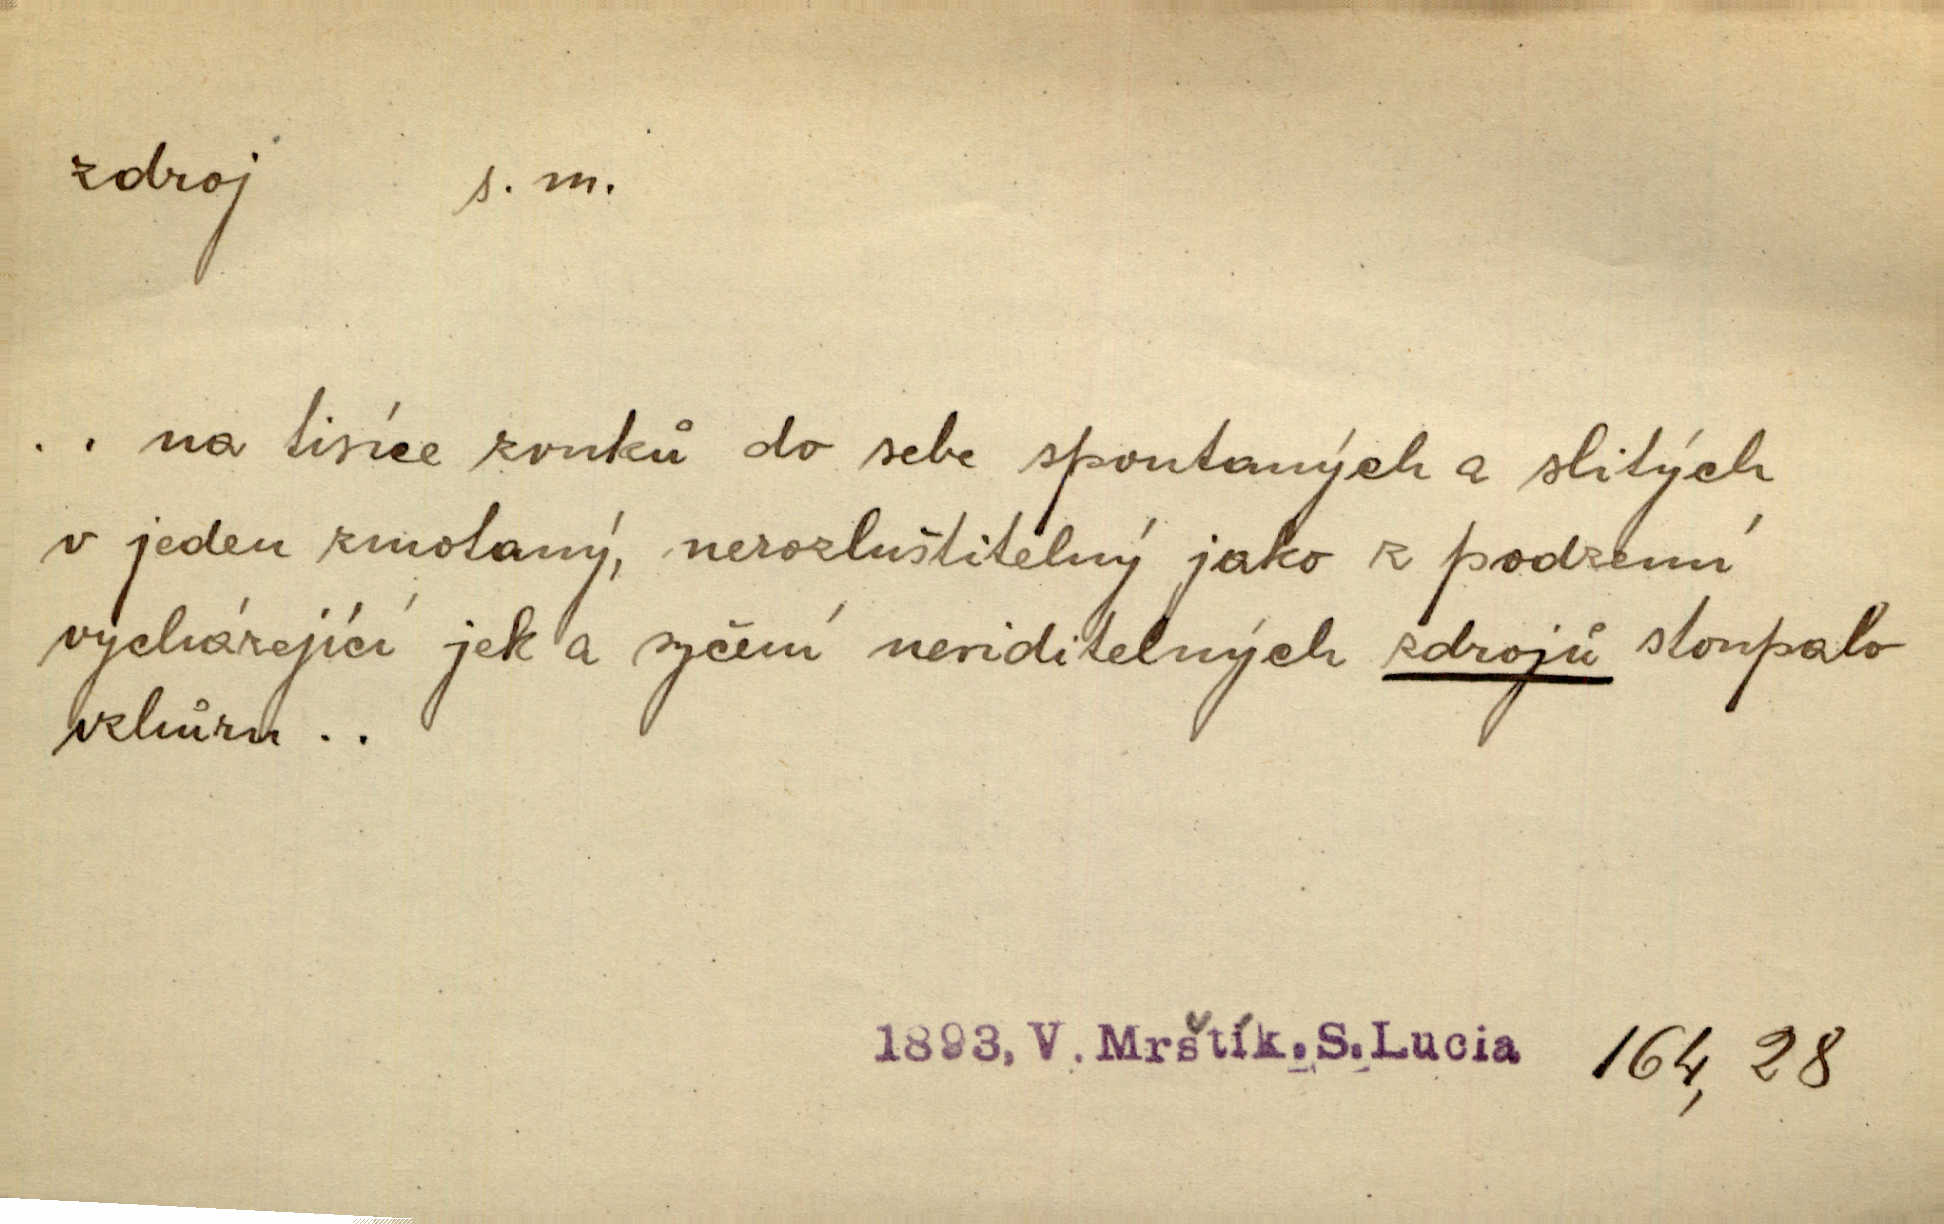 zdroj s. m.
. . na tisíce zvuků do sebe spoutaných a slitých
v jeden zmotaný, nerozluštitelný jako z podzemí
vycházející jek a syčení neviditelných zdrojů stoupalo
vzhůru . .
1893, V. Mrštík. S. Lucia 164, 28